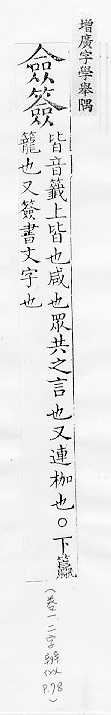 增廣字學舉隅
僉簽
皆音籤上皆也咸也眾共之言也又連枷也○下籯
籠也又簽書文字也
(卷一二字辨似
P.78)